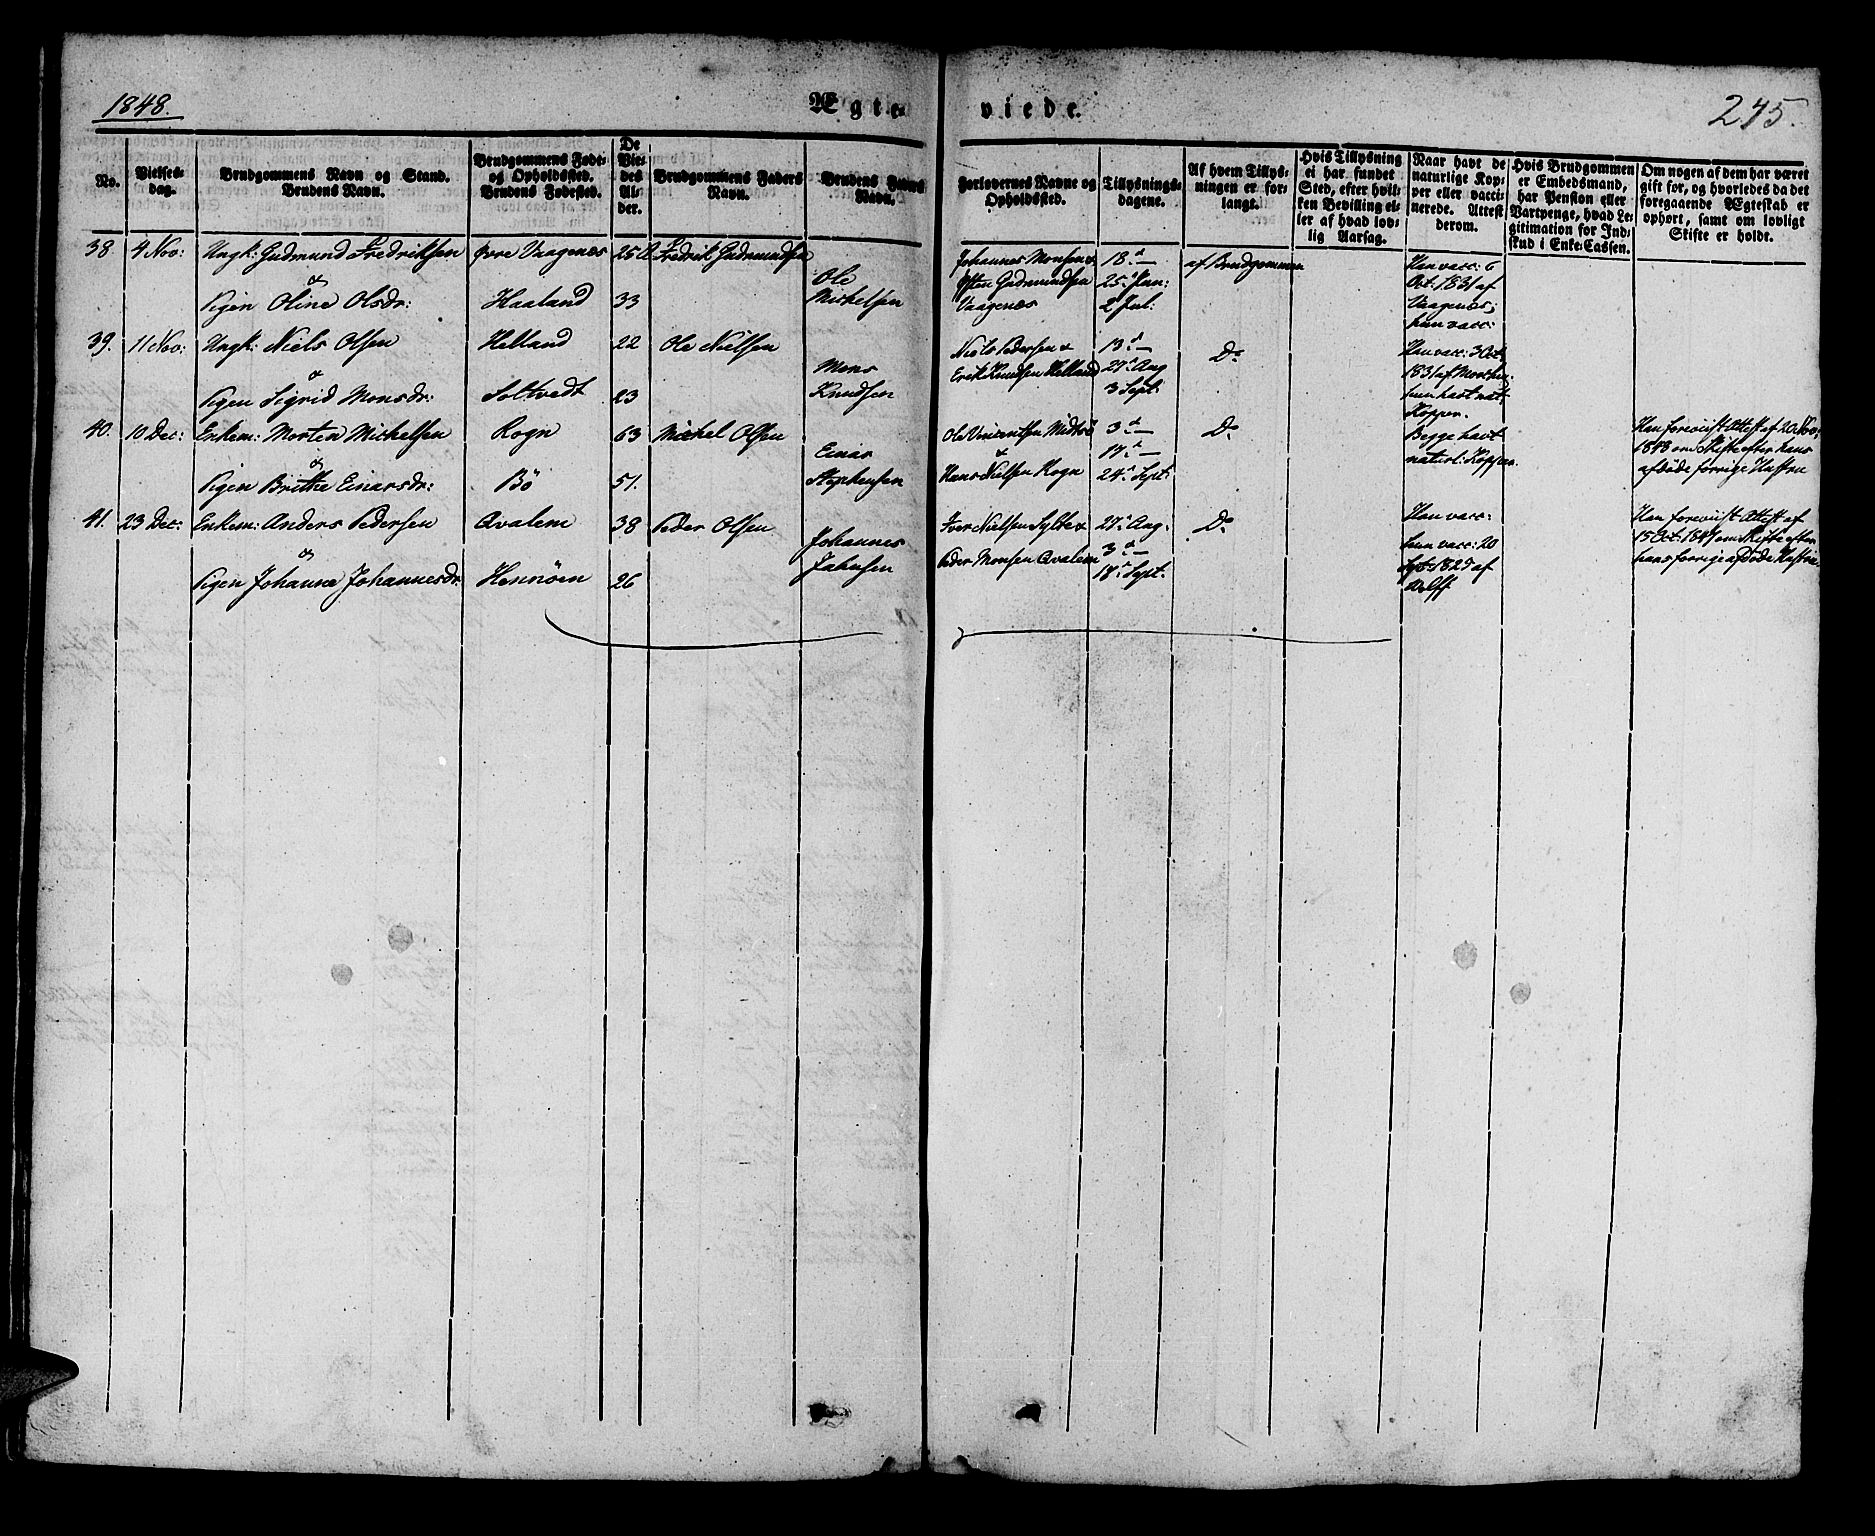 1848.
Ægte- viede.
245.
No.
Vielses-
dag.
Brudgommens Navn og Stand.
Brudens Navn.
Brudgommens Føde-
og Opholdssted.
Brudens Fødested.
De
Vie-
des
Al-
der.
Brudgommens Faders
Navn.
Brudens Faders
Navn.
Forlovernes Navne og
Opholdssted.
Tillysnings-
dagene.
Af hvem Tillys-
ningen er for-
langt.
Hvis Tillysning
ei har fundet
Sted, efter hvil-
ken Bevilling el-
ler af hvad lov-
lig Aarsag.
Naar havt de
naturlige Kop-
per eller vacci-
nerede. Attest
derom.
Hvis Brudgommen
er Embedsmand,
har Pension eller
Vartpenge, hvad Le-
gitimation for Ind-
skud i Enke-Cassen.
Om nogen af dem har været
gift før, og hvorledes da det
foregaaende Ægteskab er
ophørt, samt om lovligt
Skifte er holdt.
38. 4 Nov: Ungk: Gudmund Fredriksen
&
Pigen Oline Olsdr:
øvre Vaagenæs
Haaland
25 A
33
Fredrik Gudmundsen
Ole
Michelsen
Johannes Monsen &
Gudmundsen
Vaagenæs
18d —
25d Jun:
2 Jul:
af Brudgommen
Han vacc: 6
Oct. 1831 af
Vaagenæs;
hun vacc:
39. 11 Nov: Ungk: Niels Olsen
&
Pigen Sigrid Monsdr:
Helland
Soltvedt
22
23
Ole Nielsen
Mons
Knudsen
Niels Pedersen &
Erik Knudsen Helland
13d —
27d Aug
3 Sept:
Do
Han vacc: 3 Oct,
1831 af
hun havt nat:
Kopper.
40. 10 Dec: Enkem: Morten Michelsen
&
Pigen Brithe Einarsdr:
Rogn
Bö
63
51.
Michel Olsen
Einar
Stephensen
Ole Vincentsen
&
Hans Nielsen Rogn
3d —
17 —
24d Sept:
Do
Begge havt
naturl: Kopper.
Han foreviist Attest af 20 Nov:
1848 om Skifte efter hans
afdöde forrige Hustru
41. 23 Dec: Enkem: Anders Pedersen
&
Pigen Johanne Johannesdr:
Qvalem
Hennöen
38
26
Peder Olsen
Johannes
Jahnsen
Iver Nielsen Sylte &
Peder Monsen Qvalem
27d Aug:
3d —
18d Sept:
Do
Han vacc:
hun vacc: 20
Sept: 1829 af
Wolff
Han foreviist Attest af
15 Oct. om Skifte efter
hans forrige afdöde Hustru